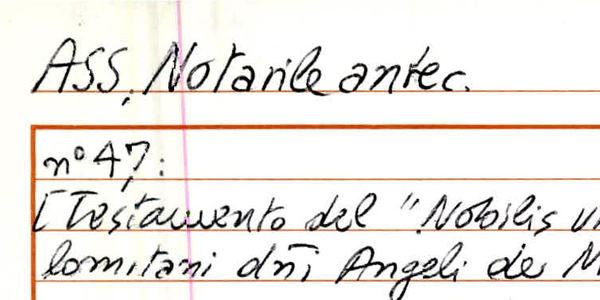 ASS. Notarile antec.
n° 47:
[Testamento del "Nobilis
lomitani dñi Angeli de